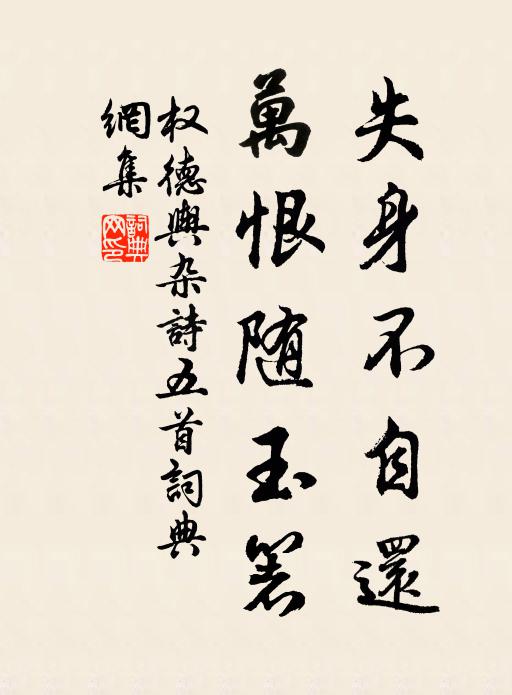 失身不自還
萬恨随玉箸
权德輿杂詩五首詞典
網集
詞典網印